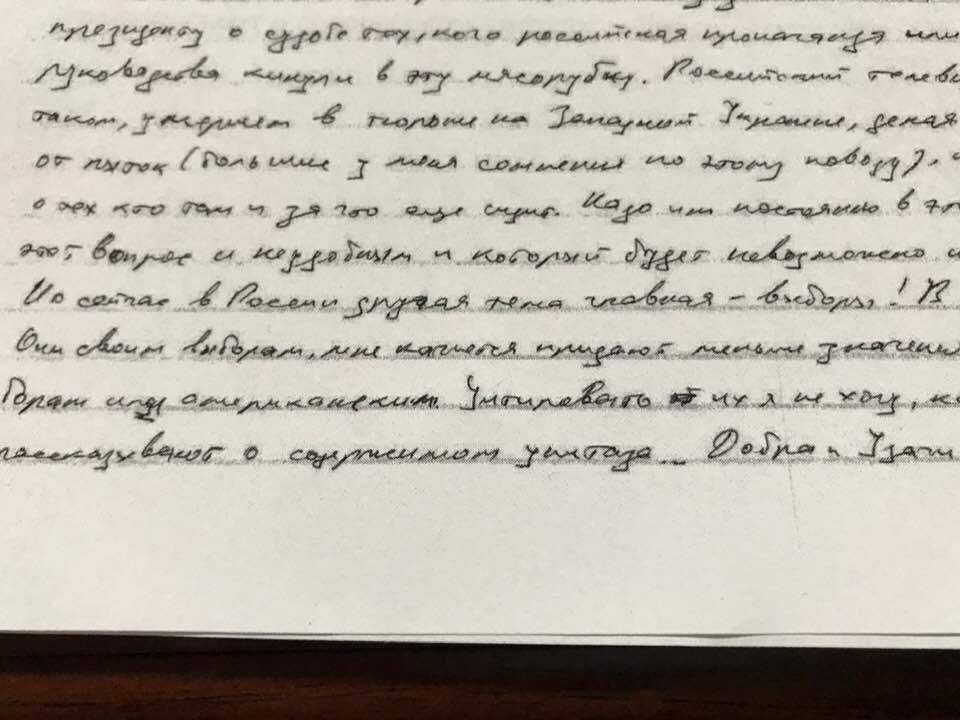 президенту о судьбе тех, кого российская пропаганда или
руководства кинули в эту мясорубку. Российский телеви
таком, умершем в тюрьме на Западной Украине, делая
от пыток (большие у меня сомнения по этому поводу), ч
о тех кто там и за что еще сидит. Надо им постоянно в эт
этот вопрос и неудобным и который будет невозможно и
Но сейчас в России другая тема главная - выборы! В
Они своим выборам, мне кажется придают меньше значения
американским. Цитировать их я не хочу, к
рассказывают о содержимом унитаза... Добра и Удачи